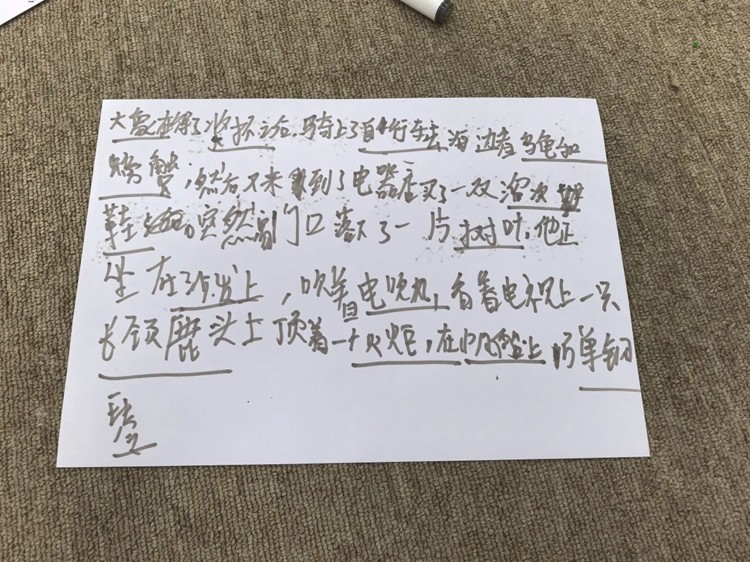 大象砸了水杯之后,骑上了自行车去海边看乌龟和
螃蟹,然后又来到了电器店买了一双溜冰
鞋 突然门口落下了一片树叶,他正
坐在沙发上,吹着电吹机,看着电视上一只
长颈鹿头上顶着一个火炬,在 上 弹钢
琴